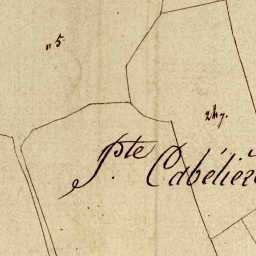 „5.
247.
Pte Cabélière